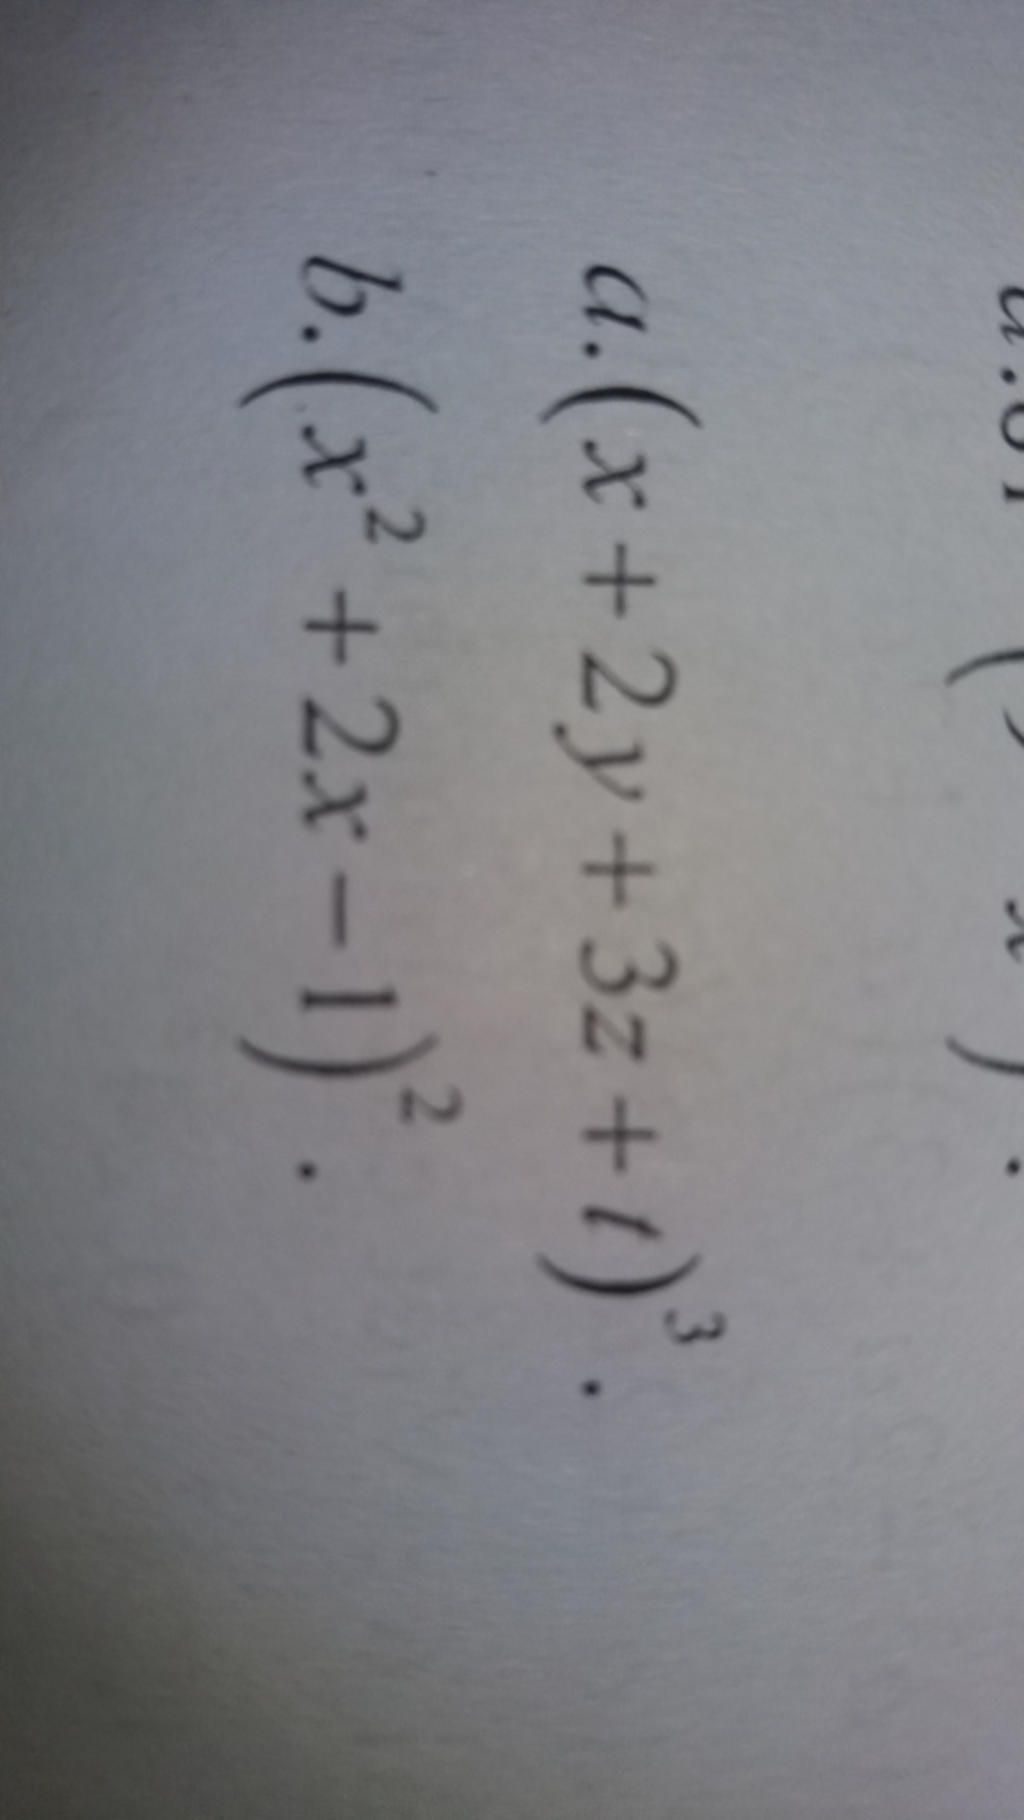 a. (x + 2y + 3z + t)³ .
b. (x² + 2x − 1)² .